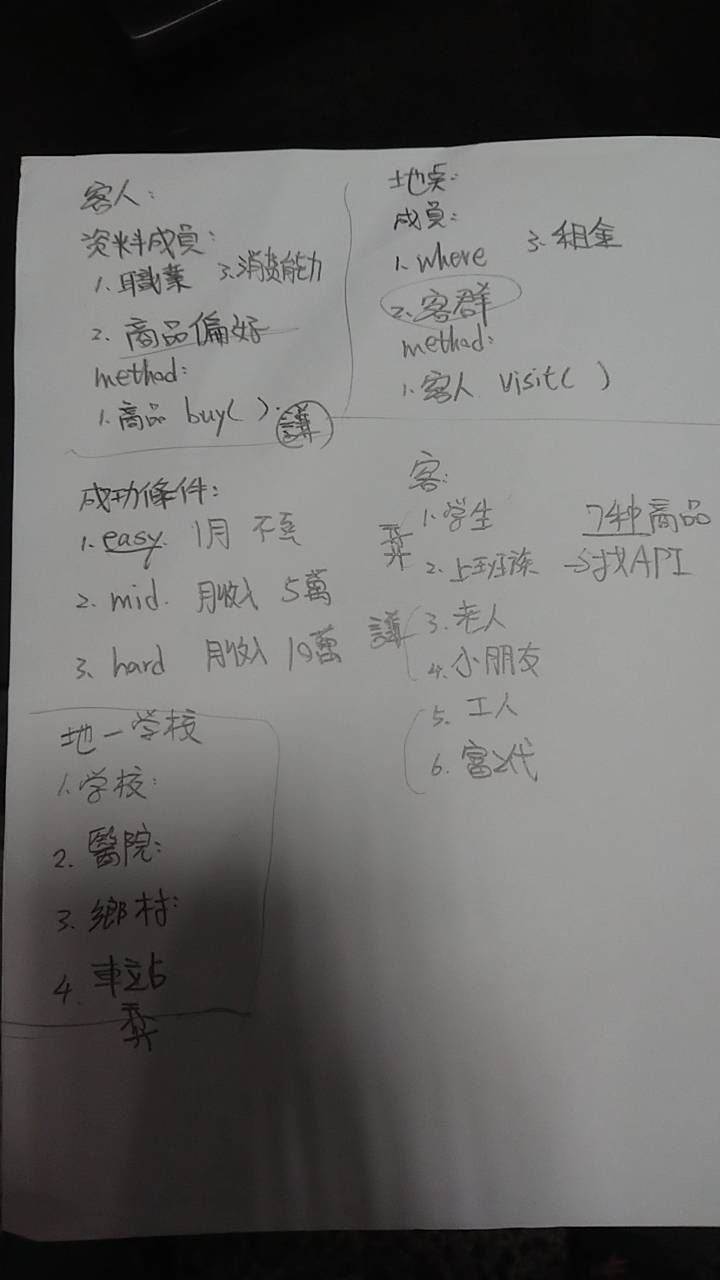 客人:
資料成員:
1. 職業 3. 消費能力
2. 商品偏好
method:
1. 商品 buy( ).
地点:
成員:
1. where 3. 租金
2. 客群
method:
1. 客人 visit( )
成功條件:
1. easy. 1月 不
2. mid. 月收入 5萬
3. hard 月收入 10萬
客:
1. 学生
2. 上班族
3. 老人
4. 小朋友
5. 工人
6. 富2代
7种商品
→找API
地一学校
1. 学校:
2. 醫院:
3. 鄉村:
4. 車站